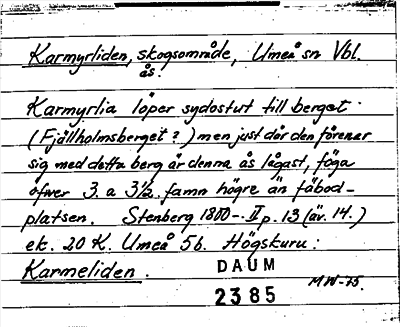 Karmyrliden, skogsområde, Umeå sn Vbl.
ås.
Karmyrlia löper sydostut till berget
(Fjällholmsberget?) men just där den förenar
sig med detta berg är denna ås lägst, föga
öfver 3. a 3½. famn högre än fäbod-
platsen. Stenberg 1800-. II p. 13 (äv. 14.)
ek. 20 K. Umeå 5b. Högskuru:
Karmeliden.
DAUM
MW-75.
2385